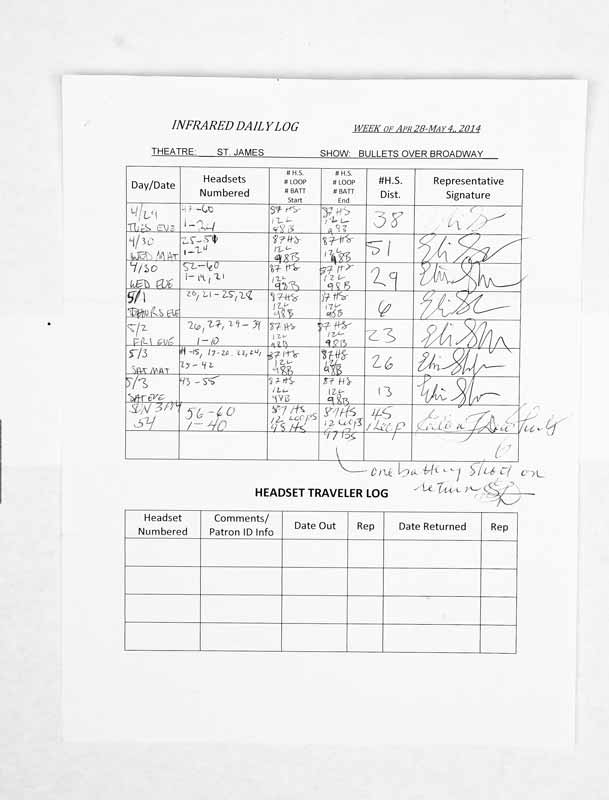 INFRARED DAILY LOG WEEK OF APR 28-MAY 4, 2014
THEATRE: ST. JAMES SHOW: BULLETS OVER BROADWAY
Day/Date Headsets Numbered # H.S. # LOOP # BATT Start # H.S. # LOOP # BATT End #H.S. Dist. Representative Signature
4/29 TUES EVE 47-60 1-24 87 HS 12L 98B 87 HS 12L 98B 38
4/30 WED MAT 25-51 1-24 87HS 12L 98B 87 HS 12L 98B 51
4/30 WED EVE 52-60 1-19, 21 87 HS 12L 98B 87 HS 12L 98B 29
5/1 THURS EVE 20, 21-25, 28 87HS 12L 98B 87HS 12L 98B 6
5/2 FRI EVE 26, 27, 29-39 1-10 87HS 12L 98B 87HS 12L 98B 23
5/3 SAT MAT 22, 24, 25-42 87HS 12L 98B 87HS 12L 98B 26
5/3 SAT EVE 43-55 87HS 12L 98B 87HS 12L 98B 13
SUN 56-60 1-40 87 HS 12 LOOPS 87HS 12 LOOPS 97 BS 45 1 LOOP
one battery short on
return
HEADSET TRAVELER LOG
Headset Numbered Comments/ Patron ID Info Date Out Rep Date Returned Rep